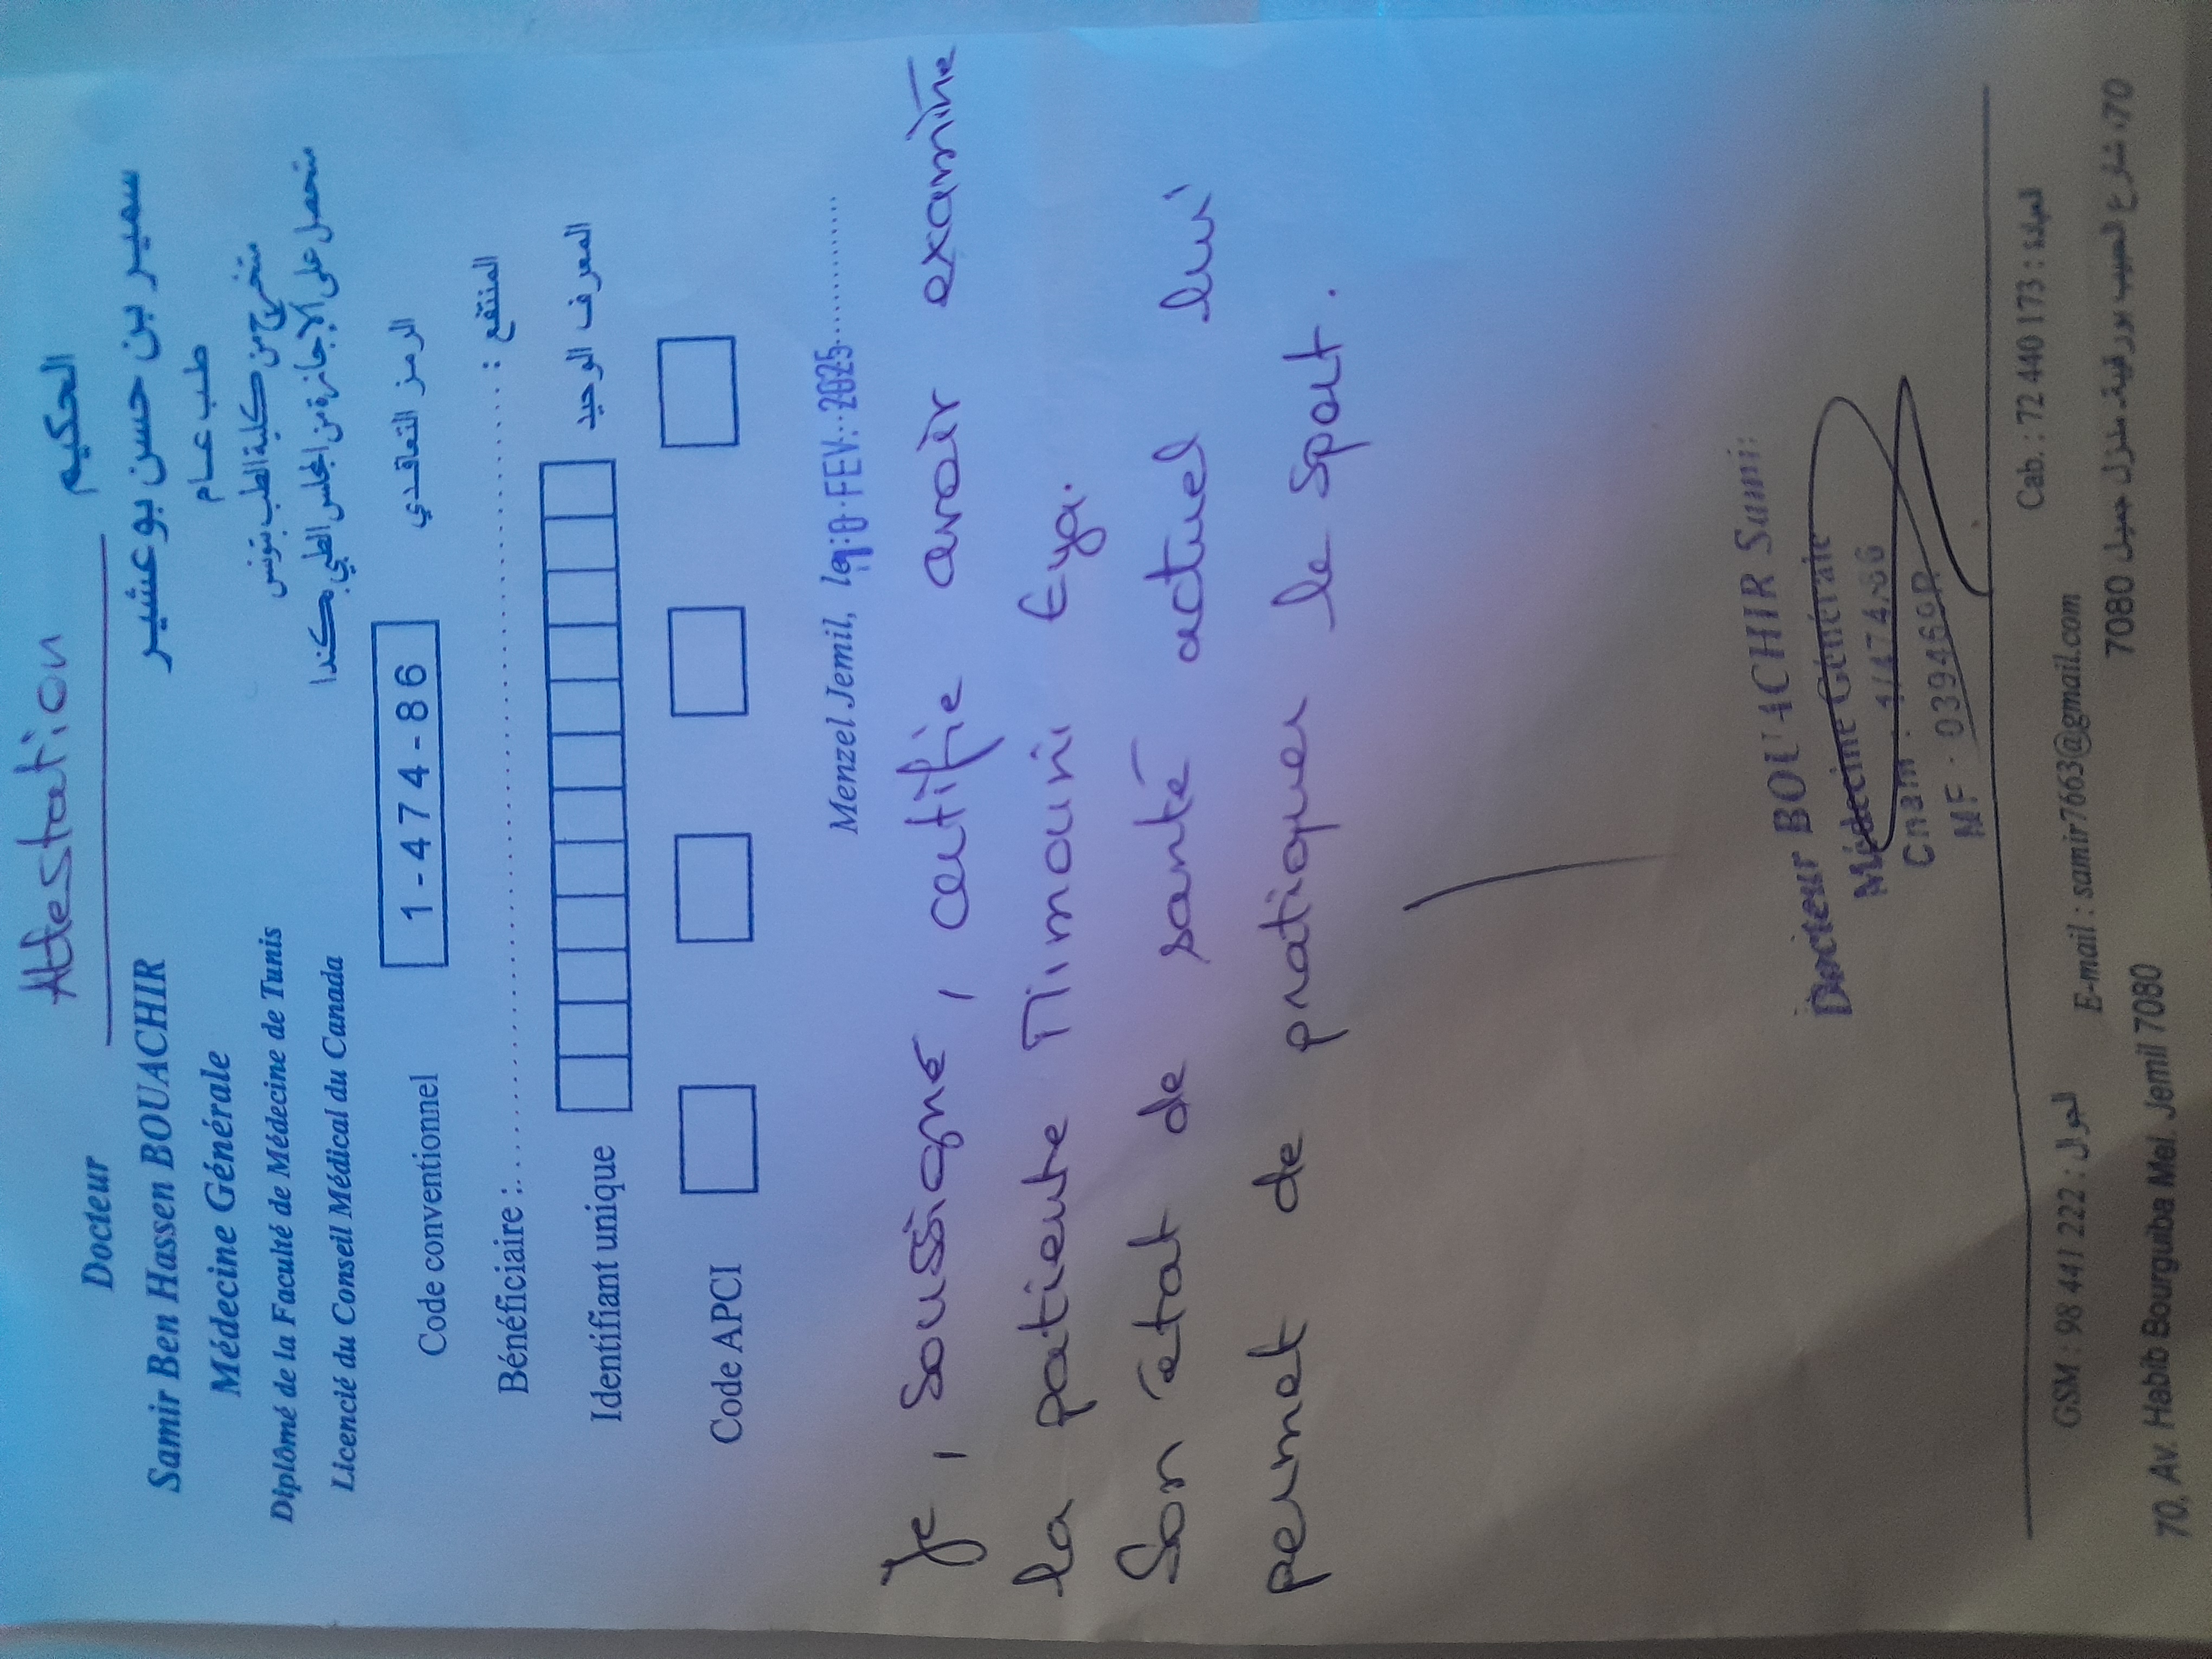 Attestation
Docteur
الحكيم
Samir Ben Hassen BOUACHIR
سمير بن حسن بوعشير
Médecine Générale
طب عام
Diplômé de la Faculté de Médecine de Tunis
متخرج من كلية الطب بتونس
Licencié du Conseil Médical du Canada
متحصل على الإجازة من المجلس الطبي بكندا
Code conventionnel 1-474-86 الرمز التعاقدي
Bénéficiaire : المنتفع :
Identifiant unique المعرف الوحيد
Code APCI
Menzel Jemil, le FEV. 2025
Je, soussigné, certifie avoir examiné
la patiente Mimouni Eya.
Son état de santé actuel lui
permet de pratiquer le sport.
Docteur BOUACHIR Samir
Médecine Générale
Cnam : 1/474/86
MF : 039469
GSM : 98 441 222 : الجوال Cab. : 72 440 173 : العيادة
E-mail : samir7663@gmail.com
70, Av. Habib Bourguiba Mel. Jemil 7080 70، شارع الحبيب بورقيبة - منزل جميل 7080